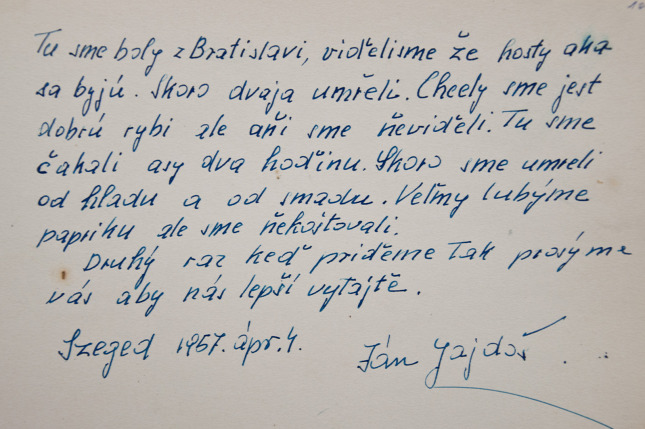 Tu sme boly z Bratislavi, viďelisme že hosty aka
sa byjú. Skoro dvaja umřeli. Cheely sme jest
dobrú rybi ale aňi sme ňeviděli. Tu sme
čahali asy dva hoďinu. Skoro sme umreli
od hladu a od smadu. Veľmy lubýme
papriku ale sme ňekoštovali.
Druhý raz keď priďeme tak prosýme
vás aby nás lepší vytajtě.
Szeged 1957. ápr. 4. Ján Gajdoš